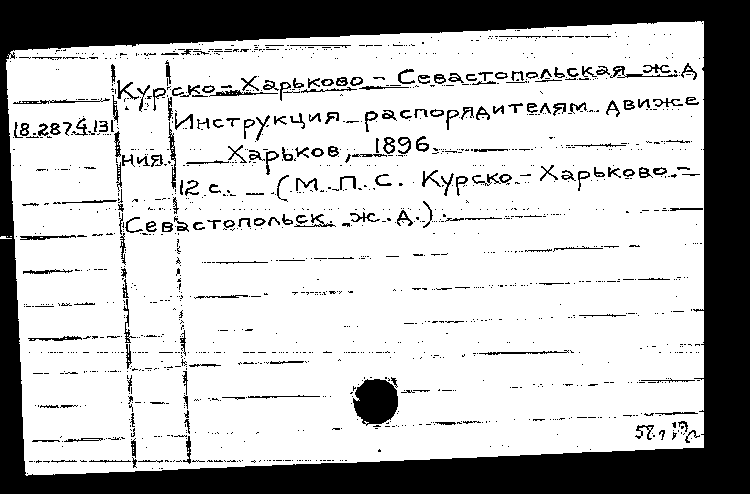 Курско-Харьково-Севастопольская ж.д.
18.287.4.131
Инструкция распорядителям движе
ния. Харьков, 1896.
12 с. — (М.П.С. Курско-Харьково-
Севастопольск. ж.д.).